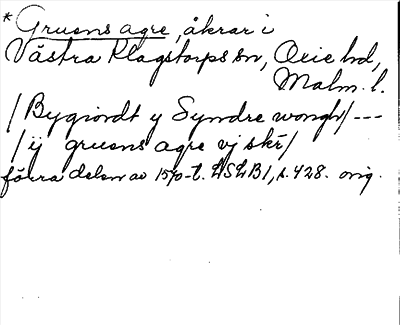 * Gruens agre, åkrar i
Västra Klagstorps sn, Oxie hd,
Malm. l.
/Bygiordt y Syndre wongh/ ---
/ij gruens agre vj skr/
förra delen av 1570-t. LSLB1, s. 428. orig.